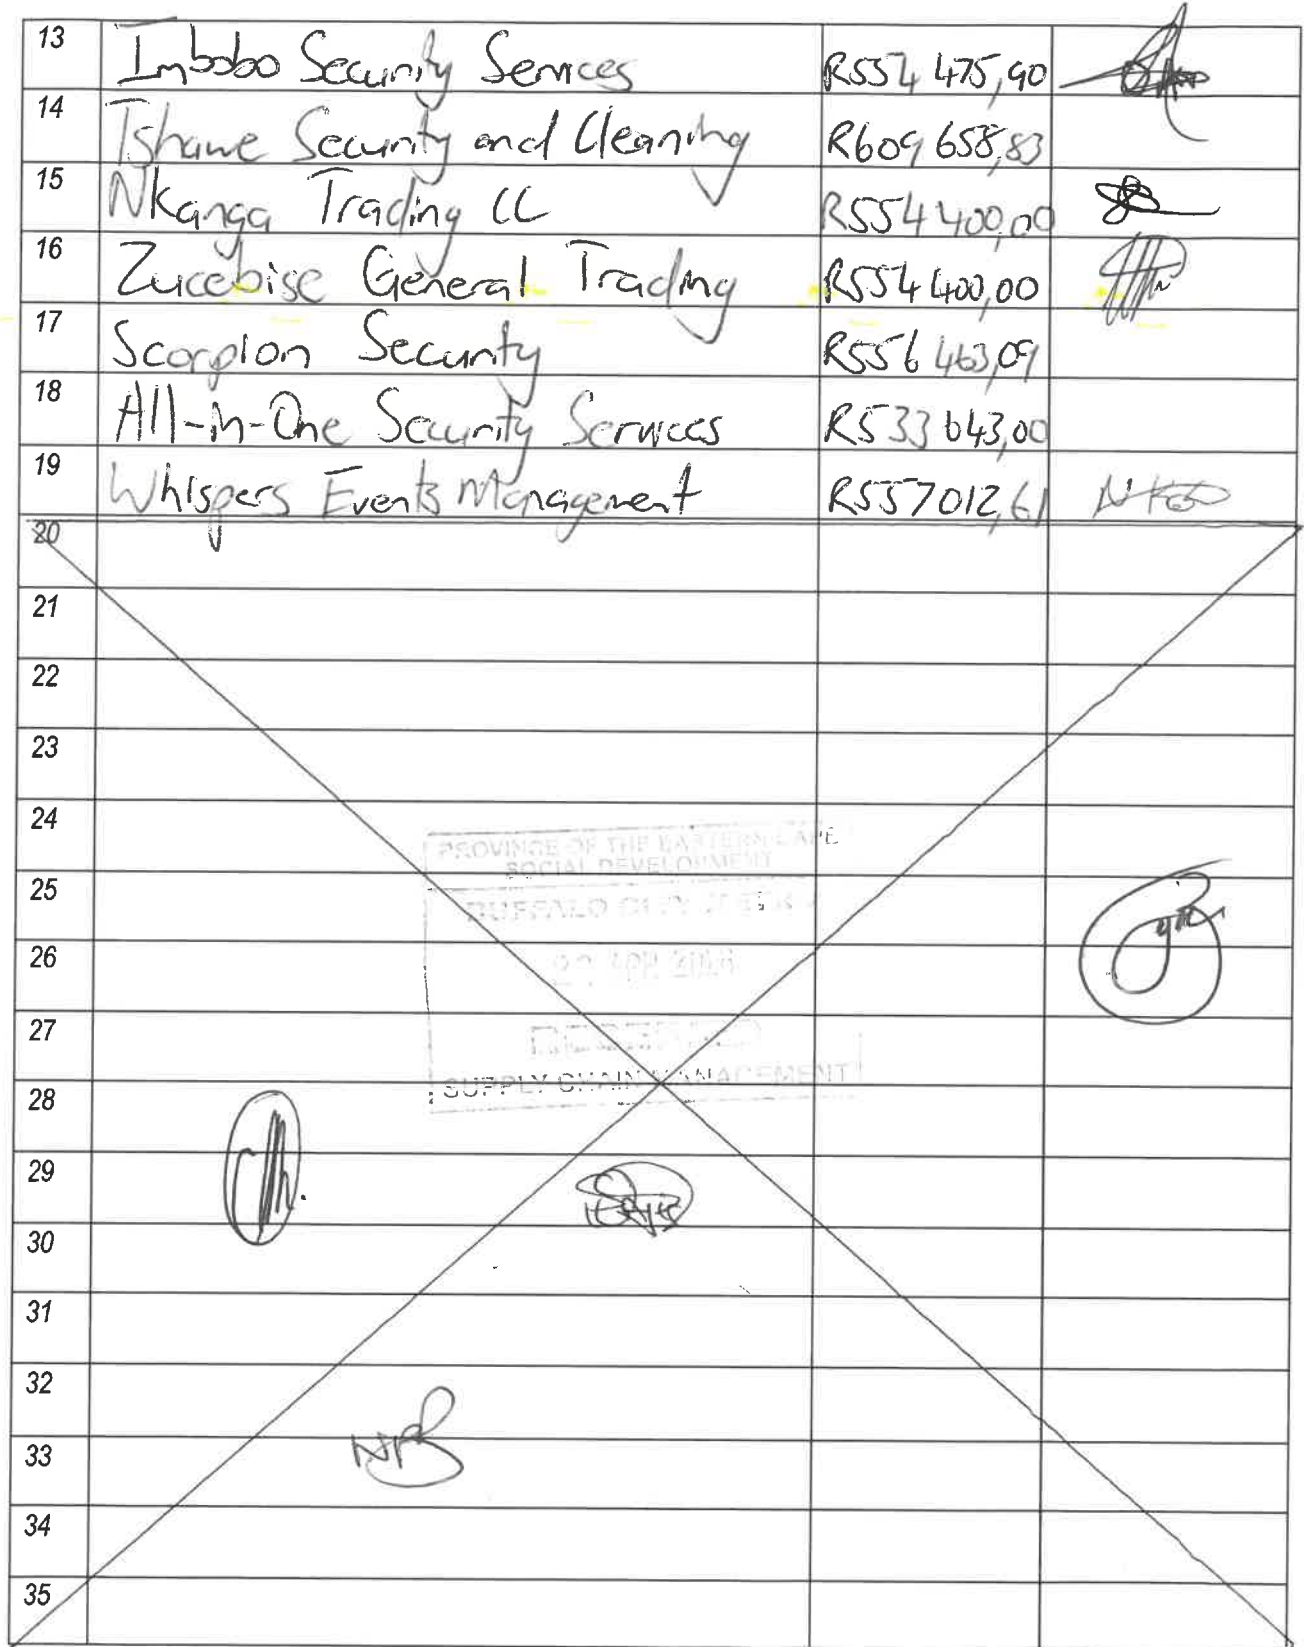 13 Imbobo Security Services R554 475,90
14 Tshawe Security and Cleaning R609 658,83
15 Nkanga Trading CC R554 400,00
16 Zucebise General Trading R554 400,00
17 Scorpion Security R556 463,09
18 All-in-One Security Services R533 643,00
19 Whispers Events Management R557012,61
20
21
22
23
24
PROVINCE OF THE EASTERN CAPE
SOCIAL DEVELOPMENT
25
BUFFALO CITY METRO
26
27
RECEIVED
SUPPLY CHAIN MANAGEMENT
28
29
30
31
32
33
34
35